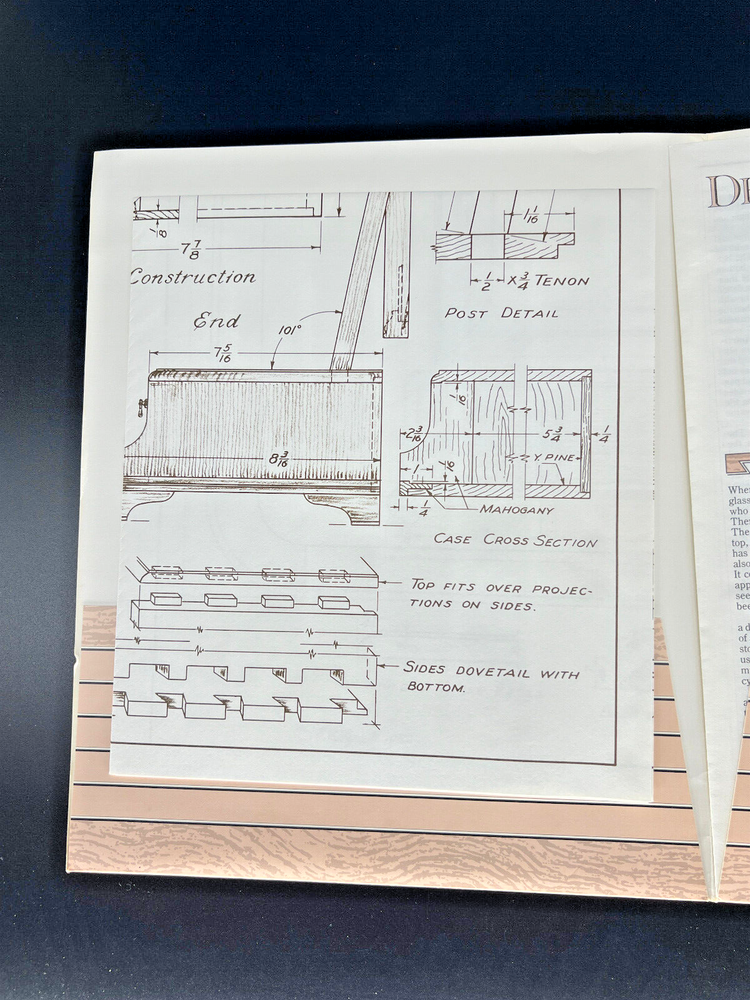 1/8
7 7/8
Construction
End
101°
7 5/16
8 3/16
1 1/16
1/2 X 3/4 TENON
POST DETAIL
1/16
2 3/16
5 3/4
1/4
1
1/16
Y. PINE
1/4
MAHOGANY
CASE CROSS SECTION
TOP FITS OVER PROJEC-
TIONS ON SIDES.
SIDES DOVETAIL WITH
BOTTOM.
glass
who
The
The
top,
has
also
It c
app
see
bee
a d
of
sto
us
m
cy